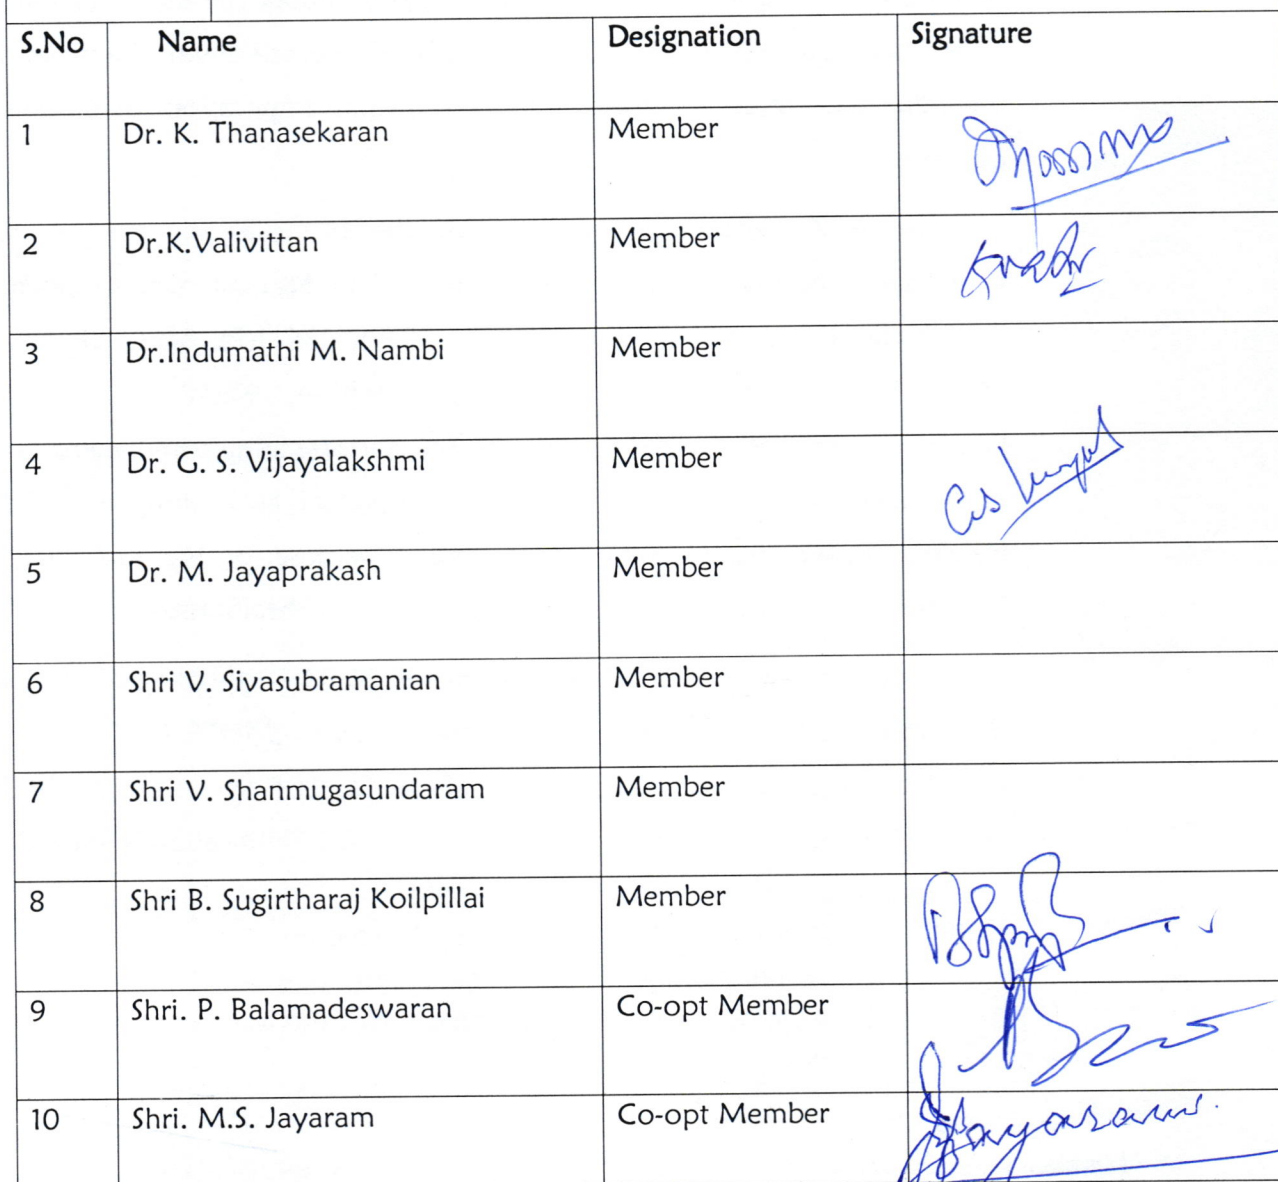 S.No Name Designation Signature
1 Dr. K. Thanasekaran Member
2 Dr.K.Valivittan Member
3 Dr.Indumathi M. Nambi Member
4 Dr. G. S. Vijayalakshmi Member
5 Dr. M. Jayaprakash Member
6 Shri V. Sivasubramanian Member
7 Shri V. Shanmugasundaram Member
8 Shri B. Sugirtharaj Koilpillai Member
9 Shri. P. Balamadeswaran Co-opt Member
10 Shri. M.S. Jayaram Co-opt Member